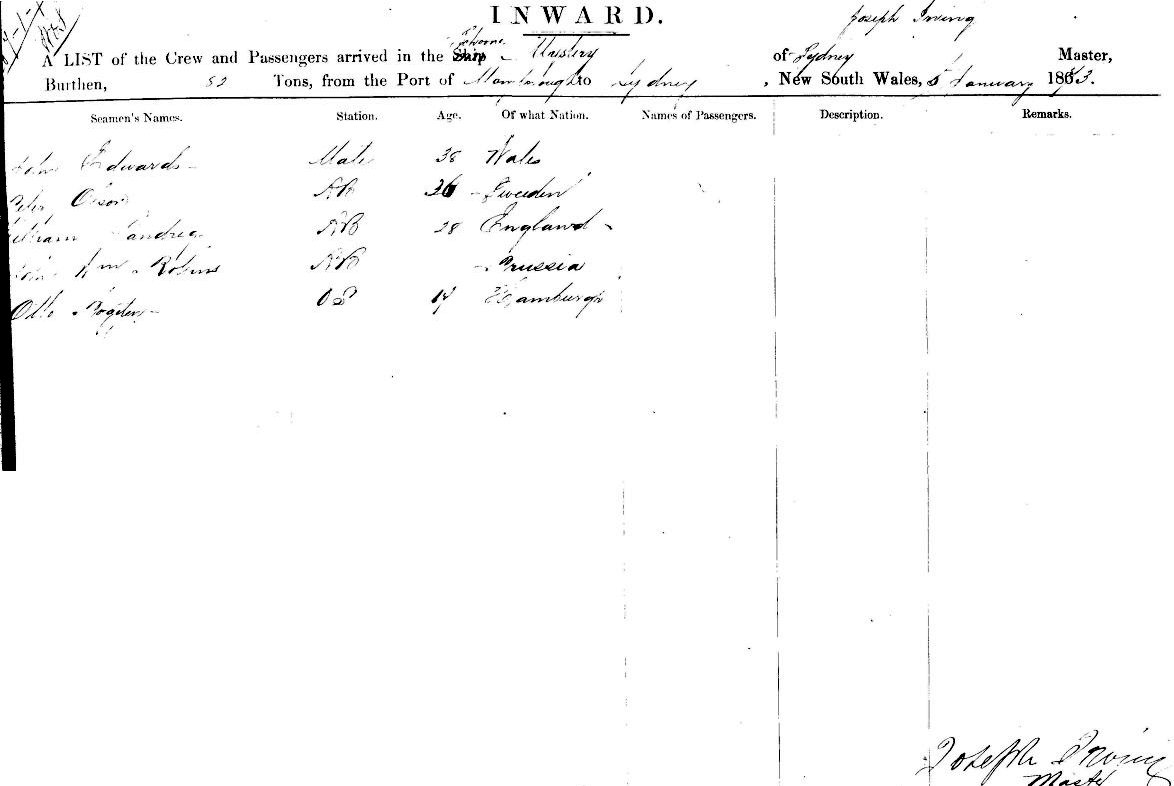 INWARD.
Joseph Irving
A LIST of the Crew and Passengers arrived in the Ship of Sydney Master,
Burthen, 82 Tons, from the Port of to Sydney, New South Wales, 5 January 1863.
Seamen's Names. Station. Age. Of what Nation. Names of Passengers. Description. Remarks.
John Edwards Mate 38 Wales
Peter Olson AB 36 Sweden
William AB 28 England
John Wm Robins AB Prussia
Otto OS 17 Hamburgh
Joseph Irving
Master